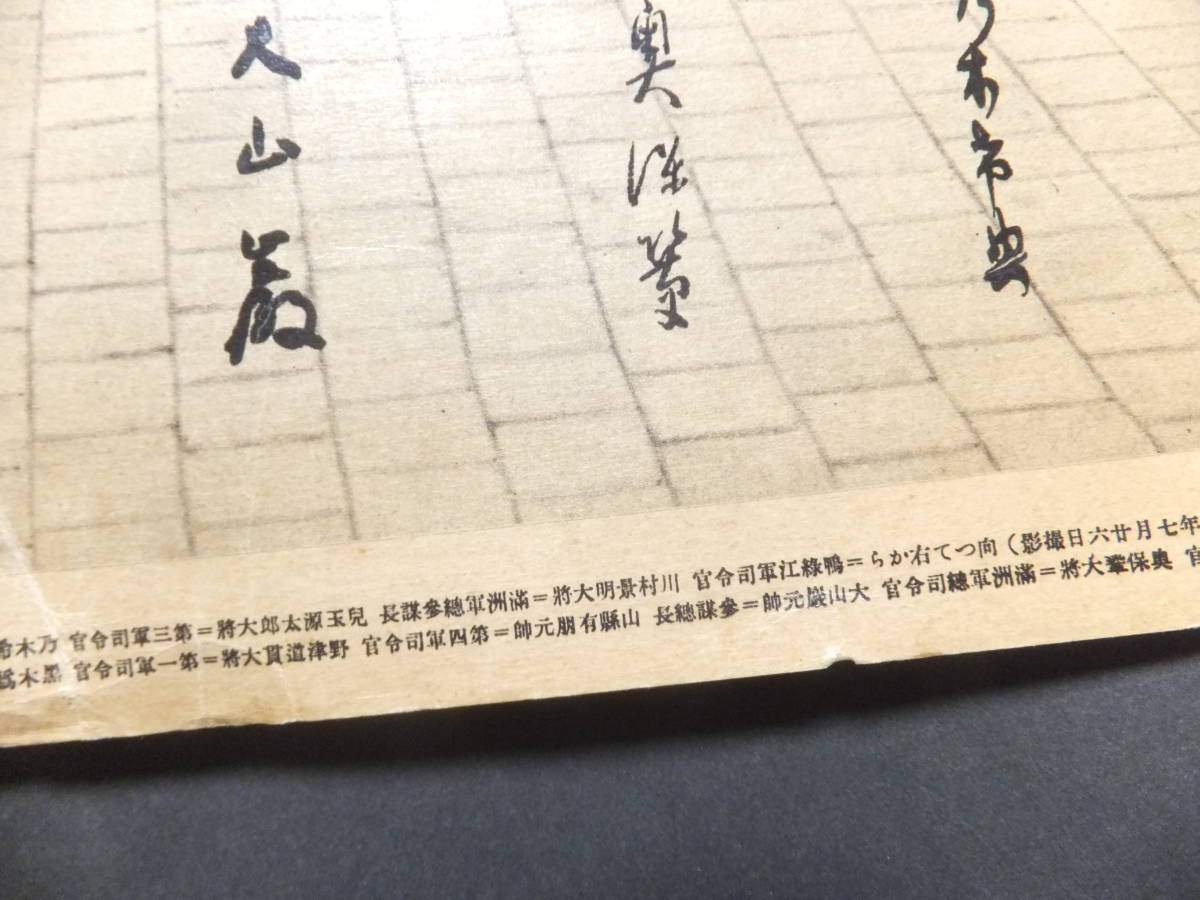 乃木希典
奥保鞏
大山巖
年七月廿六日撮影)向つて右から=鴨綠江軍司令官 川村景明大將=滿洲軍總參謀長 兒玉源太郎大將=第三軍司令官 乃木希
官 奥保鞏大將=滿洲軍總司令官 大山巖元帥=參謀總長 山縣有朋元帥=第四軍司令官 野津道貫大將=第一軍司令官 黑木爲